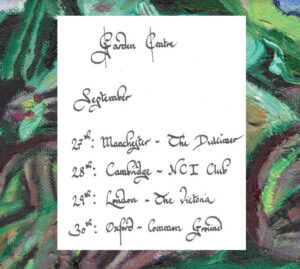 Garden Centre
September
27th: Manchester - The Dulcimer
28th: Cambridge - NCI Club
29th: London - The Victoria
30th: Oxford - Common Ground